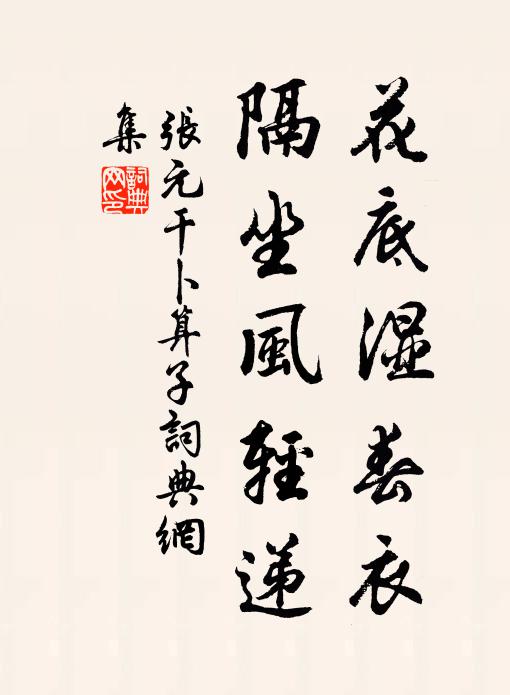 花底湿春衣
隔坐風輕递
張元干卜算子詞典網
集
詞典
网印